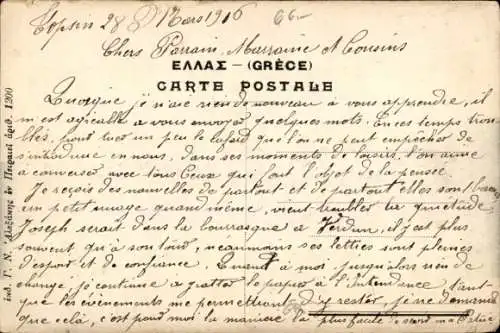 Topsin 28 Mars 1916 66-
Chers Parrain, Marraine et Cousins
ΕΛΛΑΣ – (GRÈCE)
CARTE POSTALE
Quoique je n'aie rien de nouveau à vous apprendre, il
m'est agréable à vous envoyer quelques mots. En ces temps trou-
blés, pour tuer un peu le cafard que l'on ne peut empêcher de
s'introduire en nous, dans ses moments de loisirs, l'on aime
a converser avec tous ceux qui font l'objet de la pensée.
Je reçois des nouvelles de partout et de partout elles sont
un petit nuage quand même, vient troubler la quiétude
Joseph serait dans la bourrasque a Verdun, il est plus
souvent qu'a son tour, néanmoins ses lettres sont pleines
d'espoir et de confiance. Quand à moi jusqu'alors rien de
changé je continue a gratter le papier a l'Intendance, tant
que les évènements me permettront d'y rester, je ne demande
que cela, c'est pour moi la manière la plus facile de servir ma Patrie
ἐν Πειραιεῖ ἀριθ. 1200